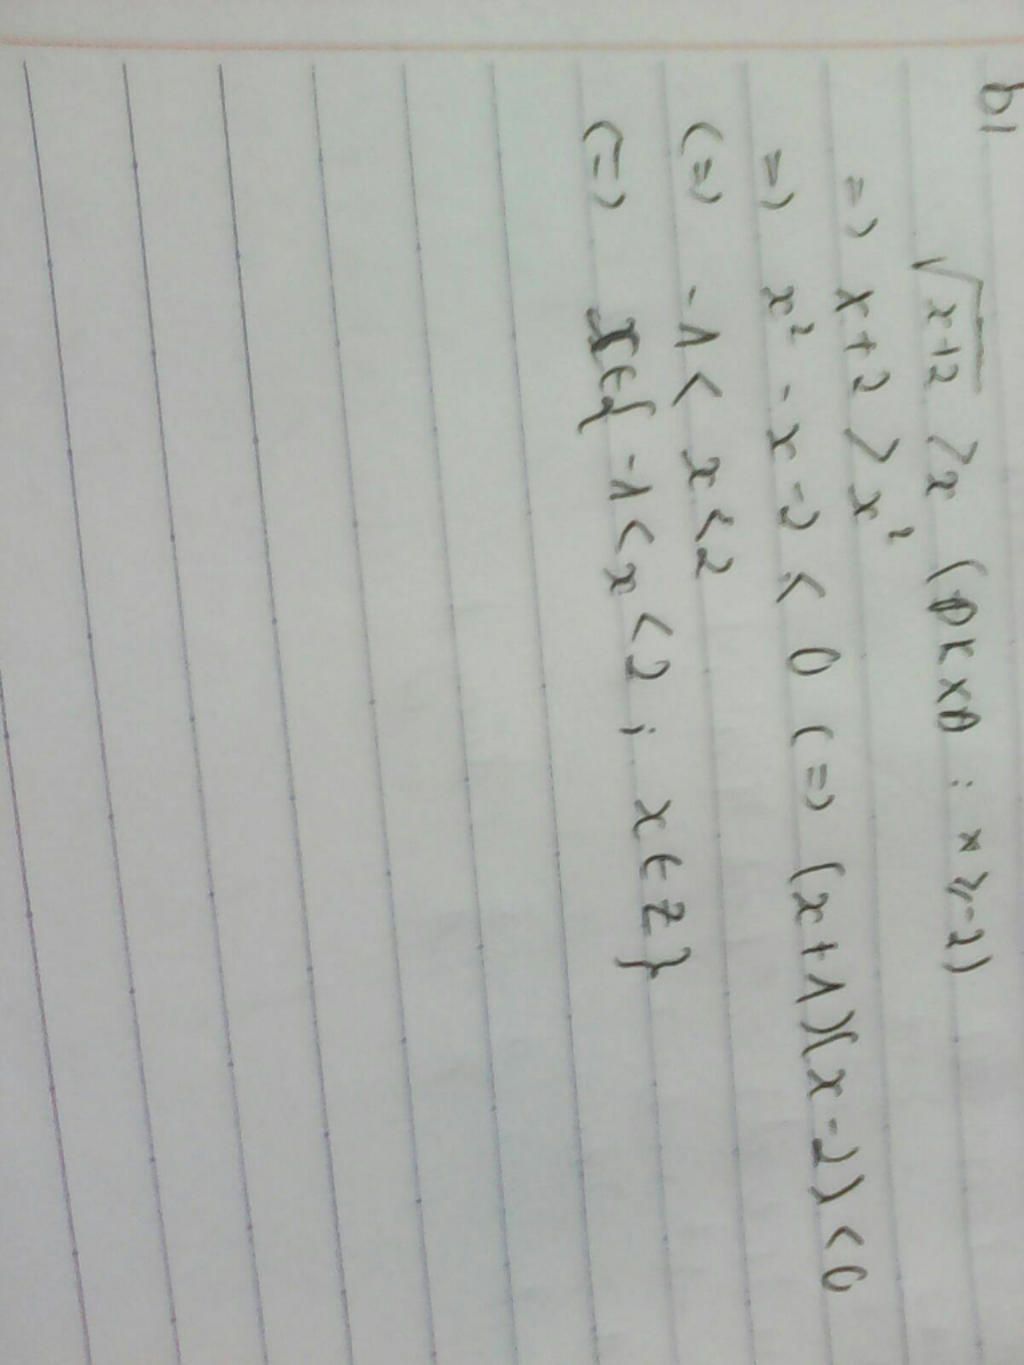 b)
√x+2 > x (ĐKXĐ : x ≥ -2)
=> x + 2 > x²
=> x² - x - 2 < 0 (=) (x + 1)(x - 2) < 0
(=) -1 < x < 2
(=) x ∈ { -1 < x < 2 ; x ∈ Z }